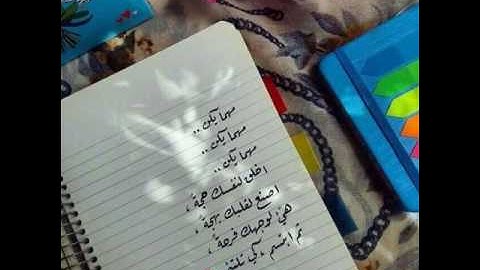 مهما يكن ..
مهما يكن ..
مهما يكن ..
اخلق لنفسك حجة ،
اصنع لقلبك بهجة ،
هيئ لوجهك فرحة ،
ثم ابتسم ، كي تلتئم